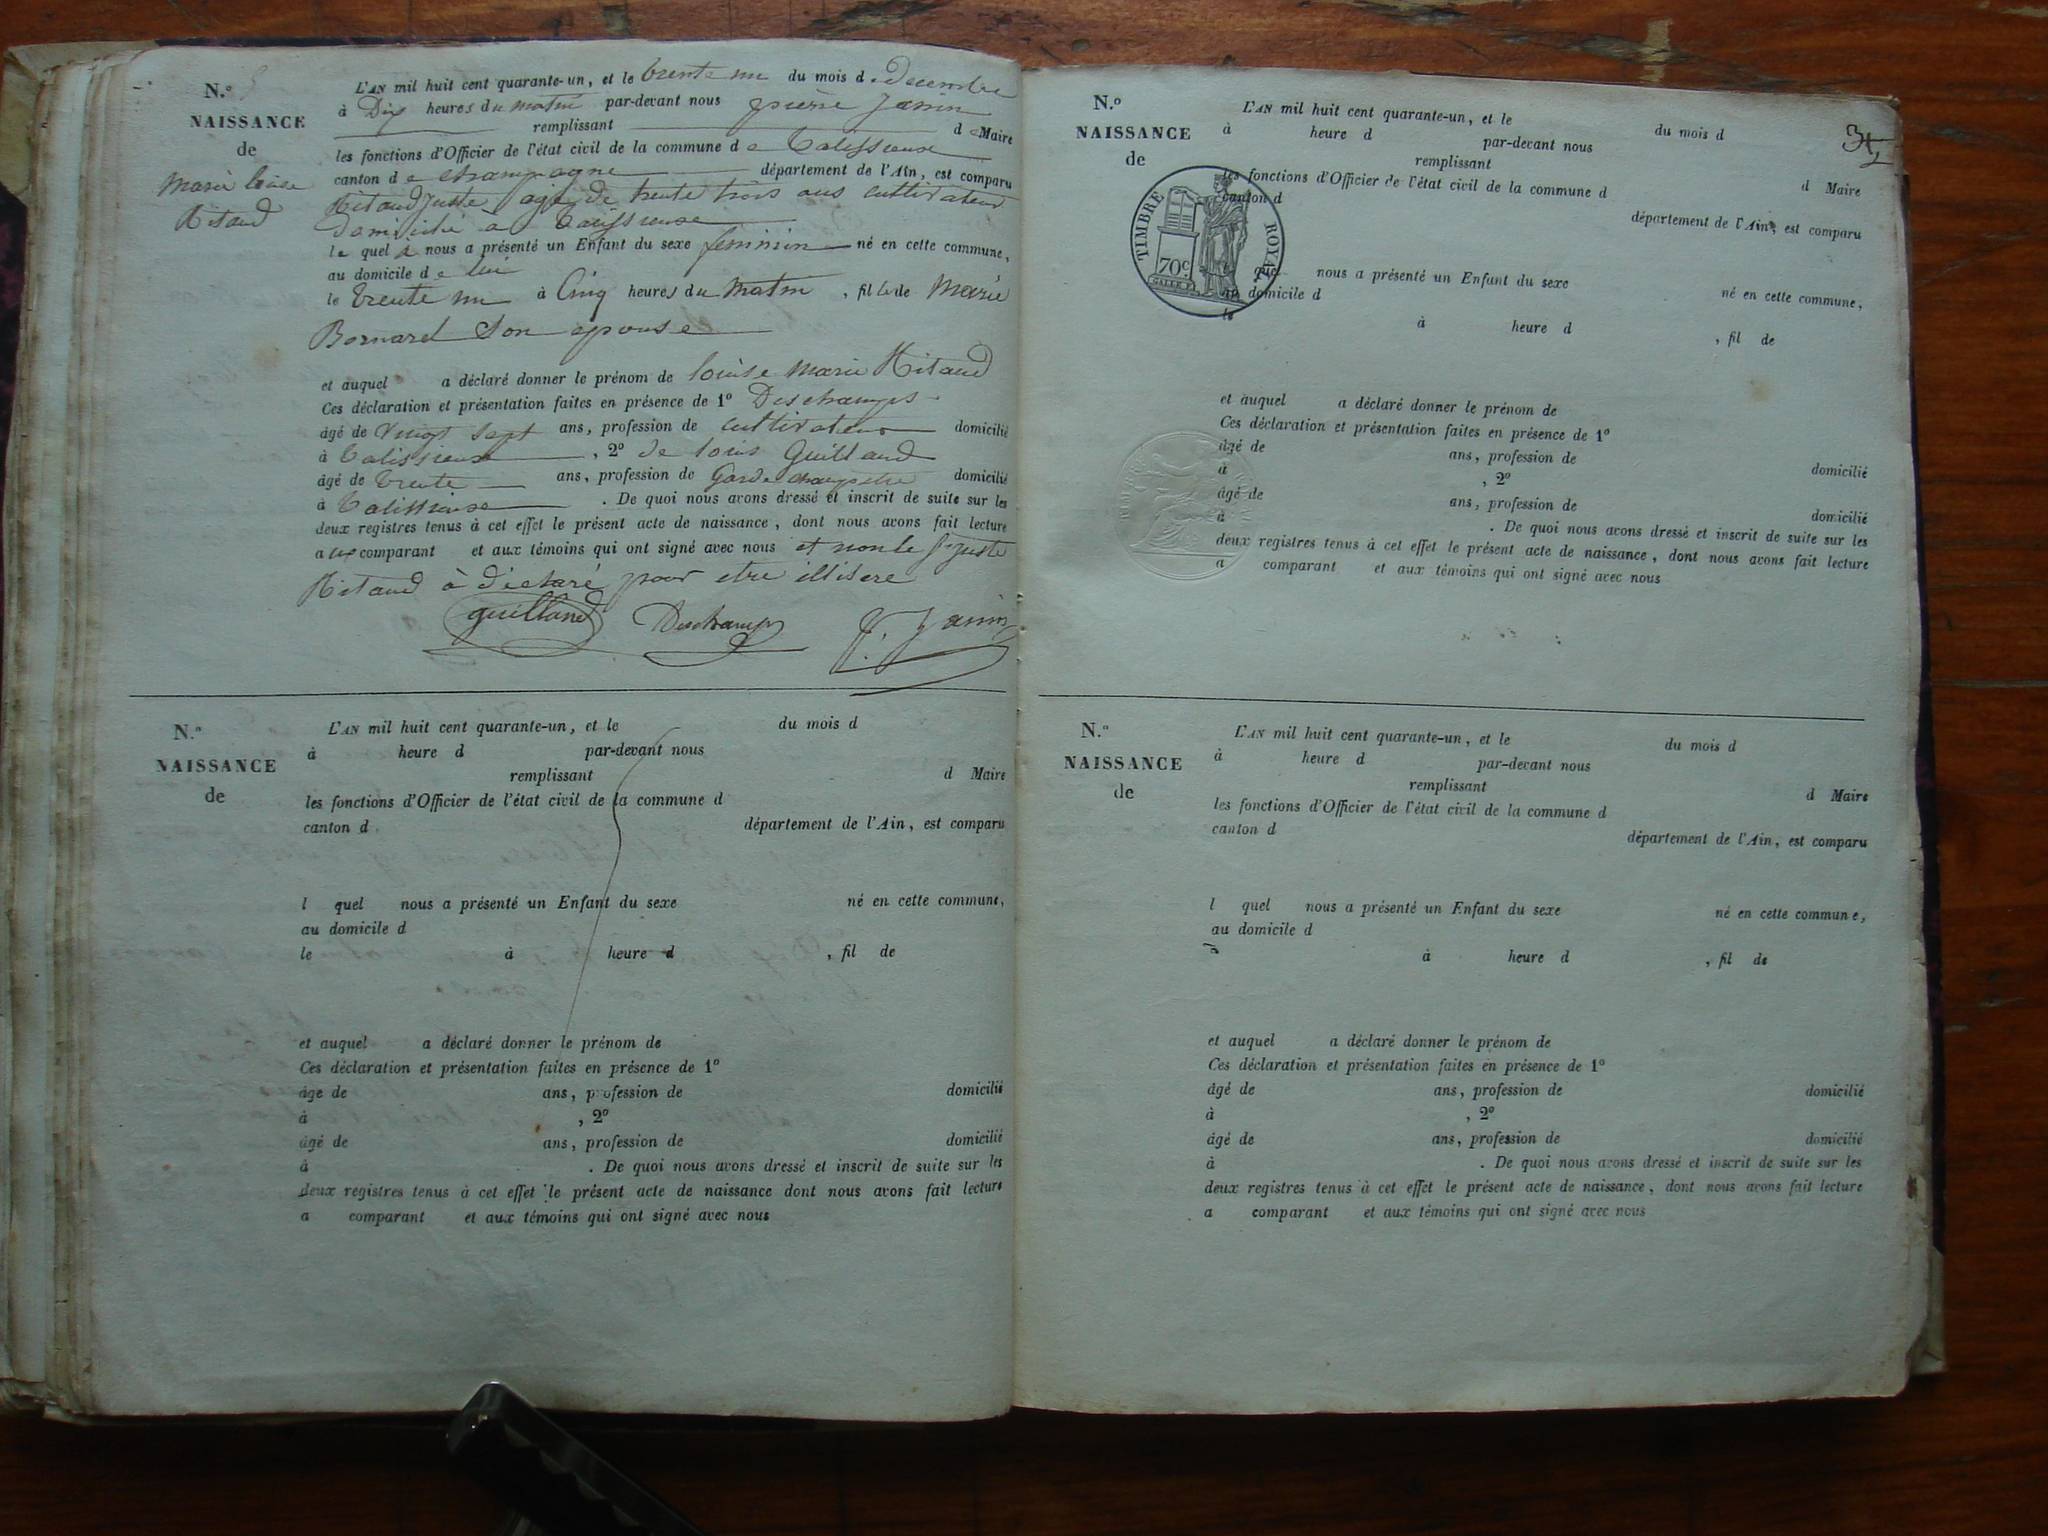 N.º
NAISSANCE
de
Marie louise
Ritaud
L'AN mil huit cent quarante-un, et le trente un du mois de Decembre
à Dix heures du matin par-devant nous pierre Janin
remplissant d Maire
les fonctions d'Officier de l'état civil de la commune de Talissieux
canton de champagne département de l'Ain, est comparu
Ritaud Juste agé de trente trois ans cultivateur
domicilié à Talissieux
le quel à nous a présenté un Enfant du sexe feminin né en cette commune,
au domicile de lui
le trente un à Cinq heures du matin, fille de Marie
Bornard son epouse
et auquel a déclaré donner le prénom de louise marie Ritaud
Ces déclaration et présentation faites en présence de 1º Deschamps
âgé de vingt sept ans, profession de cultivateur domicilié
à Talissieux, 2º de louis Guilland
âgé de trente ans, profession de Garde champetre domicilié
à Talissieux. De quoi nous avons dressé et inscrit de suite sur les
deux registres tenus à cet effet le présent acte de naissance, dont nous avons fait lecture
aux comparant et aux témoins qui ont signé avec nous et non le juste
Ritaud à déclaré pour etre illisere
guilland Deschamps P. Janin
N.º
NAISSANCE
de
L'AN mil huit cent quarante-un, et le du mois d
à heure d par-devant nous
remplissant d Maire
les fonctions d'Officier de l'état civil de la commune d
canton d département de l'Ain, est comparu
l quel nous a présenté un Enfant du sexe né en cette commune,
au domicile d
le à heure d, fil de
et auquel a déclaré donner le prénom de
Ces déclaration et présentation faites en présence de 1º
âge de ans, profession de domicilié
à, 2º
âgé de ans, profession de domicilié
à. De quoi nous avons dressé et inscrit de suite sur les
deux registres tenus à cet effet le présent acte de naissance dont nous avons fait lecture
a comparant et aux témoins qui ont signé avec nous
N.º
NAISSANCE
de
TIMBRE ROYAL
70c.
L'AN mil huit cent quarante-un, et le du mois d
à heure d par-devant nous
remplissant d Maire
les fonctions d'Officier de l'état civil de la commune d
canton d département de l'Ain, est comparu
nous a présenté un Enfant du sexe né en cette commune,
au domicile d
le à heure d, fil de
et auquel a déclaré donner le prénom de
Ces déclaration et présentation faites en présence de 1º
âgé de ans, profession de domicilié
à, 2º
âgé de ans, profession de domicilié
à. De quoi nous avons dressé et inscrit de suite sur les
deux registres tenus à cet effet le présent acte de naissance, dont nous avons fait lecture
a comparant et aux témoins qui ont signé avec nous
N.º
NAISSANCE
de
L'AN mil huit cent quarante-un, et le du mois d
à heure d par-devant nous
remplissant d Maire
les fonctions d'Officier de l'état civil de la commune d
canton d département de l'Ain, est comparu
l quel nous a présenté un Enfant du sexe né en cette commune,
au domicile d
le à heure d, fil de
et auquel a déclaré donner le prénom de
Ces déclaration et présentation faites en présence de 1º
âgé de ans, profession de domicilié
à, 2º
âgé de ans, profession de domicilié
à. De quoi nous avons dressé et inscrit de suite sur les
deux registres tenus à cet effet le présent acte de naissance, dont nous avons fait lecture
a comparant et aux témoins qui ont signé avec nous